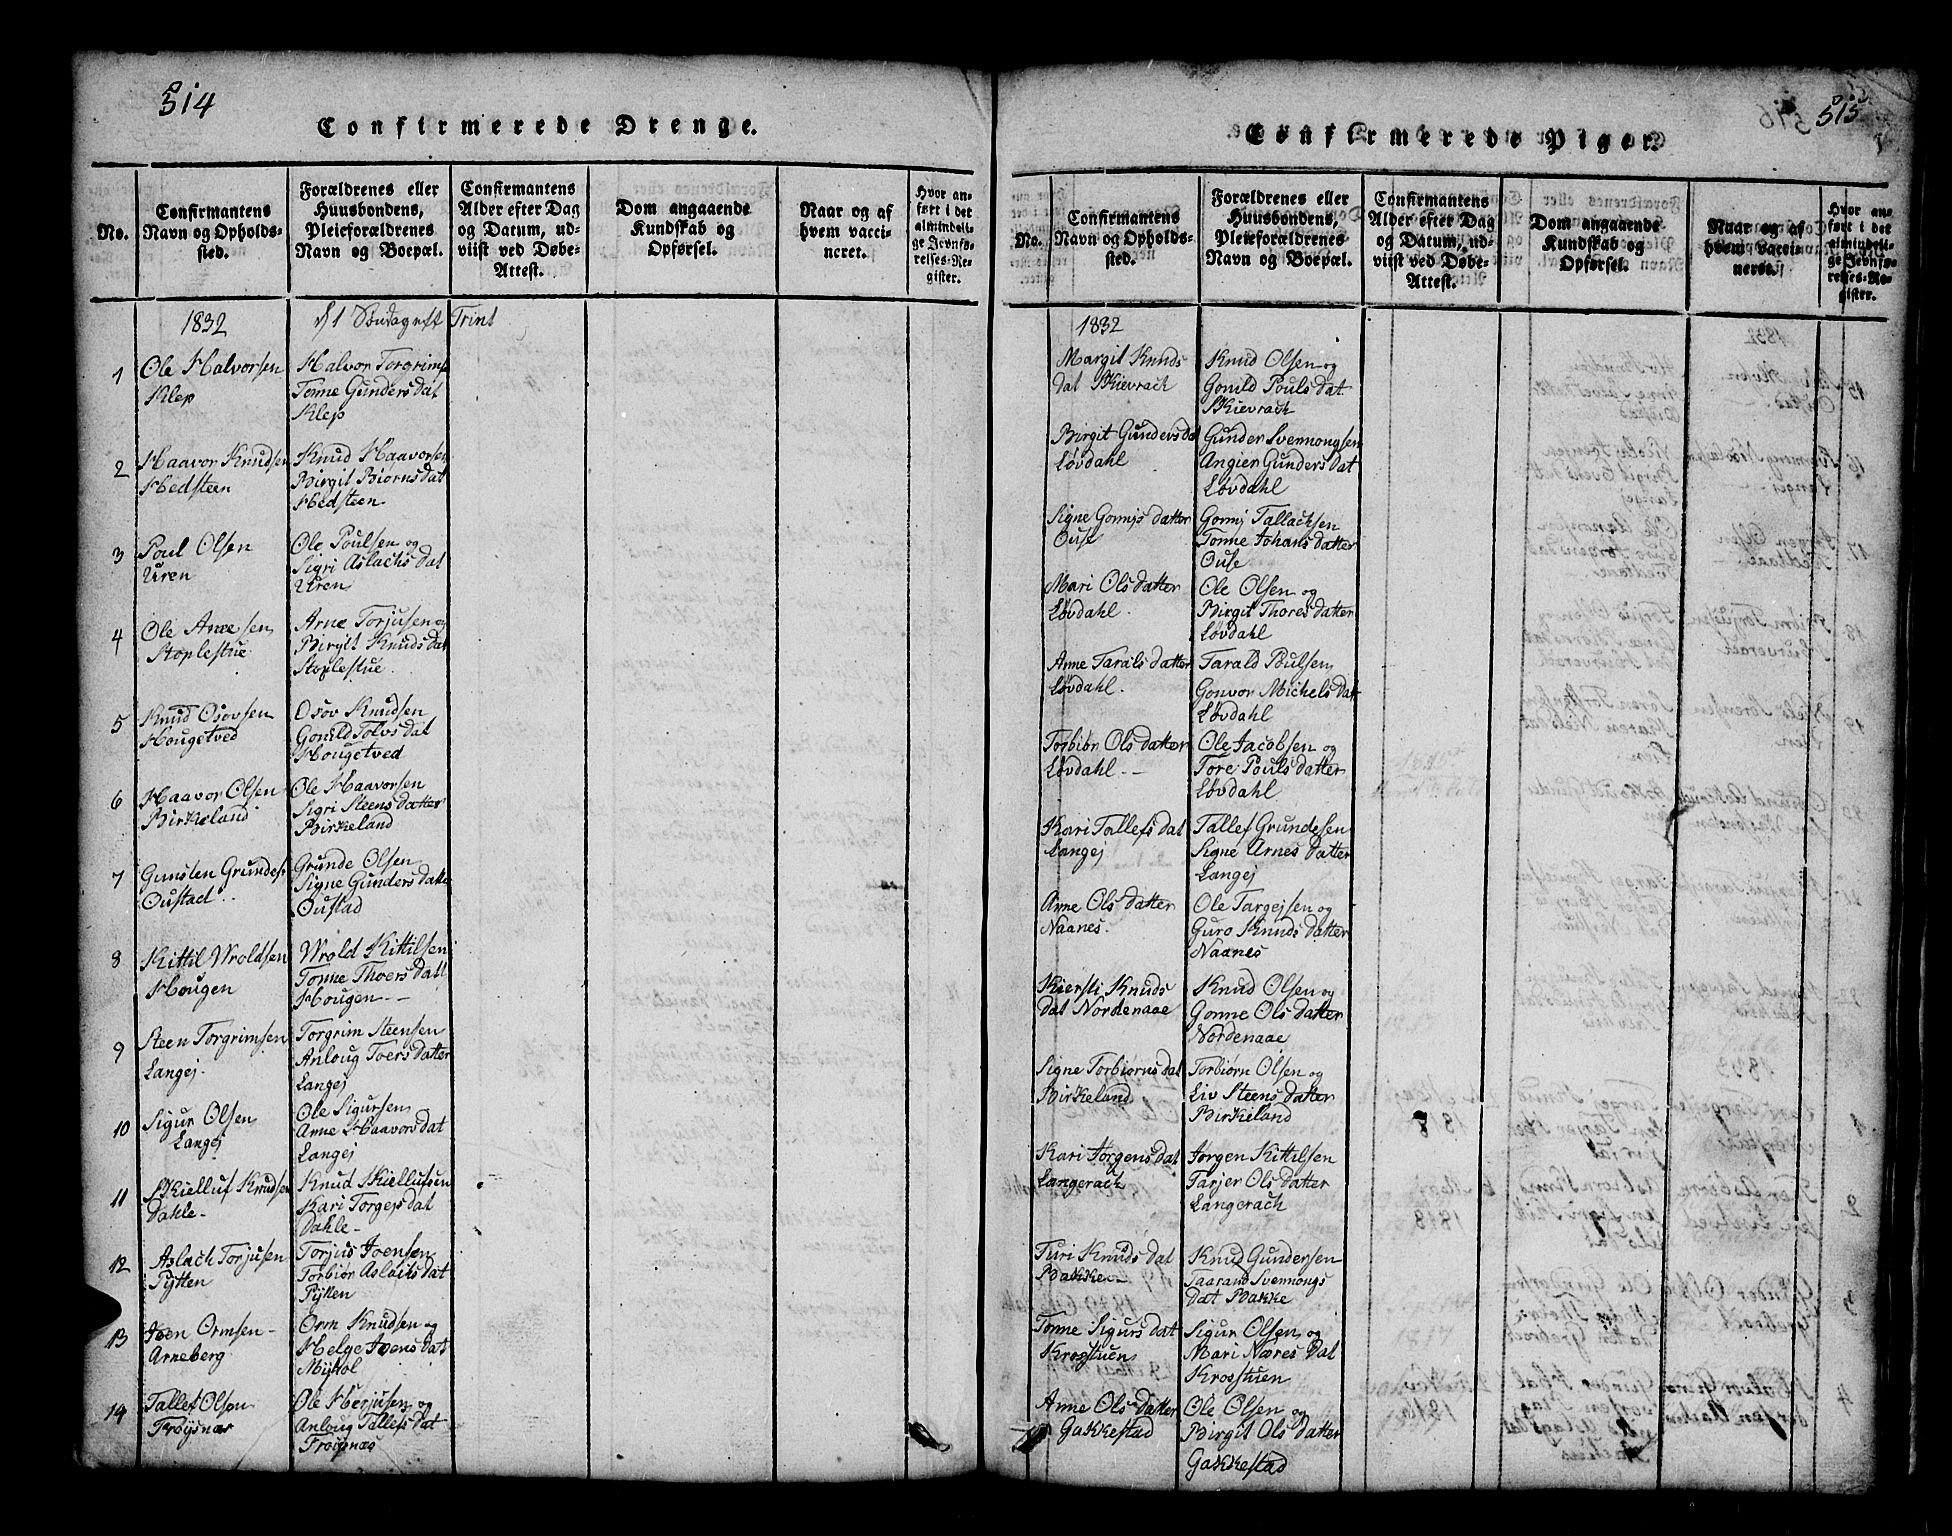 514
Confirmerede Drenge.
No.
Confirmantens
Navn og Opholds-
sted.
Forældrenes eller
Huusbondens,
Pleieforældrenes
Navn og Boepæl.
Confirmantens
Alder efter Dag
og Datum, ud-
viist ved Døbe-
Attest.
Dom angaaende
Kundskab og
Opførsel.
Naar og af
hvem vacci-
neret.
Hvor an-
ført i det
almindeli-
ge Jevnfø-
relses-Re-
gister.
1832
d 1 Søndag eft Trint
1
Ole Halvorsen
Klep
Halvor Torgrims
Tonne Gunders dat
Klep
2
Haavor Knudsen
Hedsteen
Knud Haavorsen
Birgit Biørns dat
Hedsteen
3
Poul Olsen
Uren
Ole Poulsen og
Sigri Aslachs dat
Uren
4
Ole Arnesen
Stoplestue
Arne Torjusen og
Birgit Knuds dat
Stoplestue
5
Knud Osovsen
Hougetved
Osov Knudsen
Gonild Tolvs dat
Hougetved
6
Haavor Olsen
Birkeland
Ole Haavorsen
Sigri Steens datter
Birkeland
7
Gunsten Grundes
Oustad
Grunde Olsen
Signe Gunders datte
Oustad
8
Kittil Wroldsen
Hougen
Wrold Kittilsen
Tonne Thoers datt
Hougen
9
Steen Torgrimsen
Langej
Torgrim Steensen
Anloug Toers datter
Langej
10
Sigur Olsen
Langej
Ole Sigursen
Anne Haavors dat
Langej
11
Skielluf Knudsen
Dahle
Knud Skiellufsen
Kari Torgejs dat
Dahle
12
Aslach Torjusen
Pytten
Torjus Joensen
Torbiør Aslaks dat
Pytten
13
Joen Ormsen
Arneberg
Orm Knudsen og
Helge Joens dat
Myhol
14
Tallef Olsen
Frøysnæs
Ole Herjusen og
Anloug Tallefs dat
Frøysnæs
515
Confirmerede Piger.
No.
Confirmantens
Navn og Opholds-
sted.
Forældrenes eller
Huusbondens,
Pleieforældrenes
Navn og Boepæl.
Confirmantens
Alder efter Dag
og Datum, ud-
viist ved Døbe-
Attest.
Dom angaaende
Kundskab og
Opførsel.
Naar og af
hvem vacci-
neret.
Hvor an-
ført i det
almindeli-
ge Jevnfø-
relses-Re-
gister.
1832
Margit Knuds
dat Skievrach
Knud Olsen og
Gonild Pouls dat
Skievrach
Birgit Gunders dat
Løvdahl
Gunder Svennongsen
Angier Gunders dat
Løvdahl
Signe Gonnjs datter
Ouse
Gonnj Tallachsen
Tonne Johans datter
Ouse
Mari Ols datter
Løvdahl
Ole Olsen og
Birgit Thores datter
Løvdahl
Anne Tarals datter
Løvdahl.
Tarald Poulsen
Gonvor Michels dat
Løvdahl
Torbiør Ols datter
Løvdahl
Ole Jacobsen og
Tore Pouls datter
Løvdahl
Kari Tallefs dat
Langej
Tallef Grundesen
Signe Arnes datter
Langej
Anne Ols datter
Naanes
Ole Targejsen og
Guro Knuds datter
Naanes
Kiersti Knuds
dat Nordenaae
Knud Olsen og
Gonne Ols datter
Nordenaae
Signe Torbiørns dat
Birkeland
Torbiørn Olsen og
Liv Steens datter
Birkeland
Kari Jørgens dat
Langerach
Jørgen Kittilsen
Tarjer Ols datter
Langerach
Turi Knuds dat
Bakken
Knud Gundersen
Taarand Svennongs
dat Bakke
Tonne Sigurs dat
Krostuen
Sigur Olsen og
Mari Næres dat
Krosstuen
Anne Ols datter
Gakkestad
Ole Olsen og
Birgit Ols datter
Gakkestad